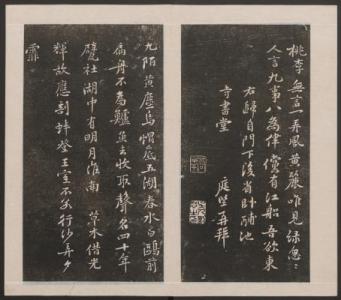 桃李無言一再風黄鸝唯見綠怱〻
人言九事八為律儻有江船吾欲東
右歸自門下後省卧酺池
寺書堂
庭堅再拜
九陌黄塵烏帽底五湖春水白鷗前
扁舟不為鱸魚去收取聲名四十年
甓社湖中有明月淮南草木借光
輝故應剖蚌登王室不若行沙弄夕
霏